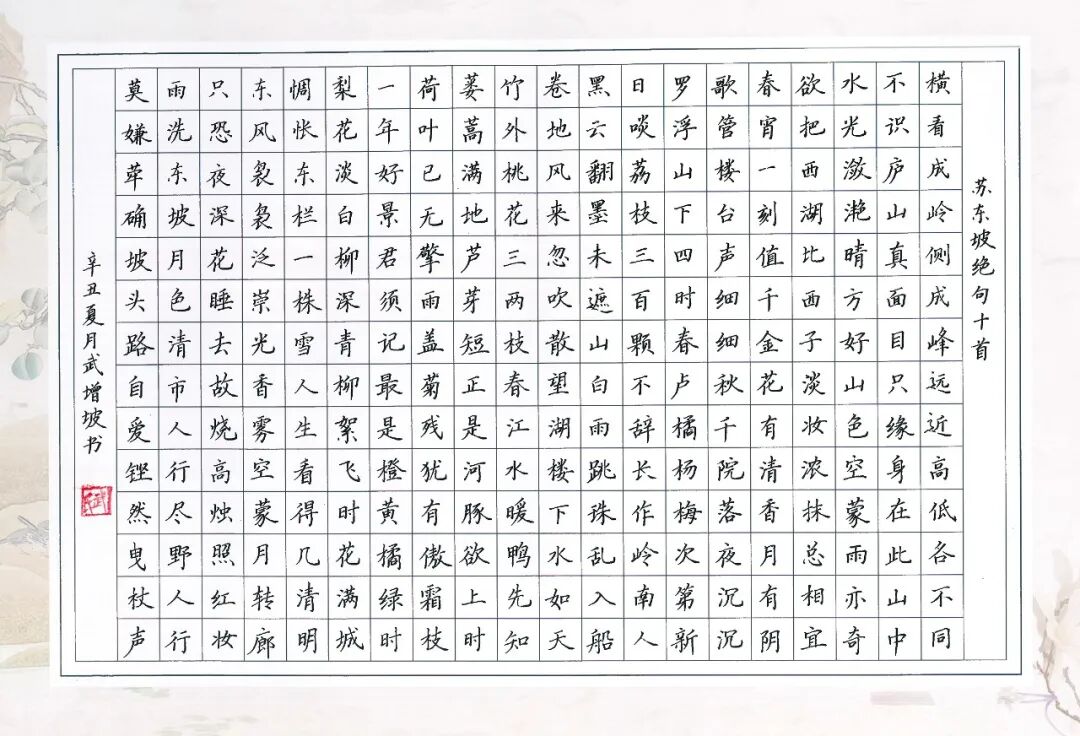 苏东坡绝句十首
横看成岭侧成峰远近高低各不同
不识庐山真面目只缘身在此山中
水光潋滟晴方好山色空蒙雨亦奇
欲把西湖比西子淡妆浓抹总相宜
春宵一刻值千金花有清香月有阴
歌管楼台声细细秋千院落夜沉沉
罗浮山下四时春卢橘杨梅次第新
日啖荔枝三百颗不辞长作岭南人
黑云翻墨未遮山白雨跳珠乱入船
卷地风来忽吹散望湖楼下水如天
竹外桃花三两枝春江水暖鸭先知
蒌蒿满地芦芽短正是河豚欲上时
荷叶已无擎雨盖菊残犹有傲霜枝
一年好景君须记最是橙黄橘绿时
梨花淡白柳深青柳絮飞时花满城
惆怅东栏一株雪人生看得几清明
东风袅袅泛崇光香雾空蒙月转廊
只恐夜深花睡去故烧高烛照红妆
雨洗东坡月色清市人行尽野人行
莫嫌荦确坡头路自爱铿然曳杖声
辛丑夏月武增坡书